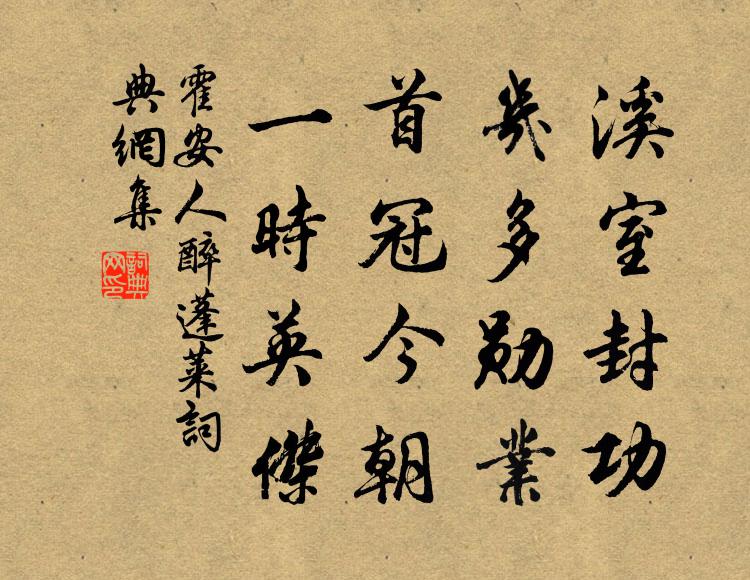 溪室封功
幾多勛業
首冠今朝
一時英傑
霍安人醉蓬萊詞
典網集
詞典
网印